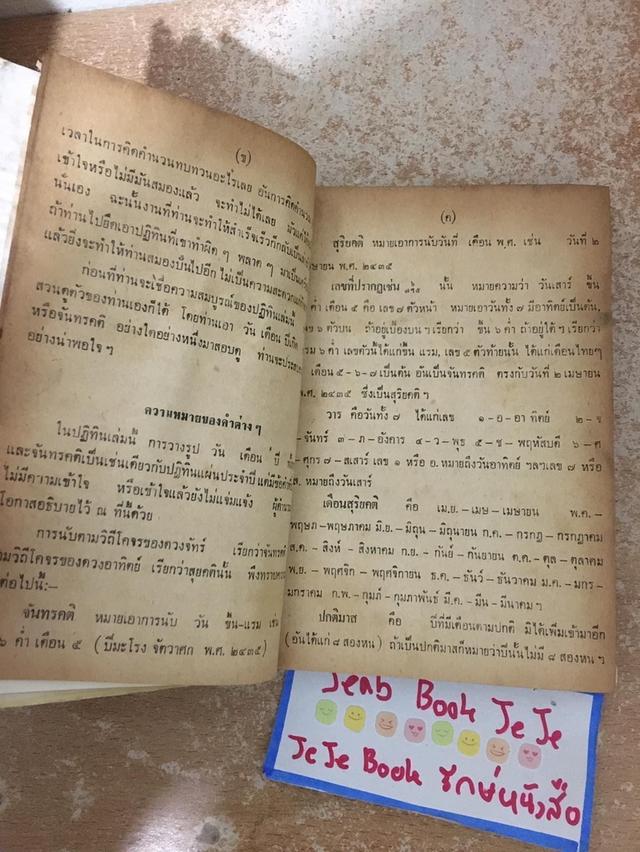 (ข)
เวลาในการคิดคำนวนทบทวนอะไรเลย อันการคิดคำนวน
เข้าใจหรือไม่มีมันสมองแล้ว จะทำไม่ได้เลย
นั่นเอง ฉะนั้นงานที่ท่านจะทำให้สำเร็จเร็วก็กลับเป็น
ถ้าท่านไปยึดเอาปฏิทินที่เขาทำผิด ๆ พลาด ๆ มาเป็น
แล้วยิ่งจะทำให้ท่านสมองปั่นไปอีก ไม่เป็นความสะดวก
ก่อนที่ท่านจะเชื่อความสมบูรณ์ของปฏิทินเล่มนี้
สวนดูตัวของท่านเองก็ได้ โดยท่านเอา วัน เดือน ปีเกิด
หรือจันทรคติ อย่างใดอย่างหนึ่งมาสอบดู ท่านจะประสบ
อย่างน่าพอใจ ๆ
ความหมายของคำต่าง ๆ
ในปฏิทินเล่มนี้ การวางรูป วัน เดือน ปี
และจันทรคติเป็นเช่นเดียวกับปฏิทินแผ่นประจำปี แต่มีข้อ
ไม่มีความเข้าใจ หรือเข้าใจแล้วยังไม่แจ่มแจ้ง
โอกาสอธิบายไว้ ณ ที่นี้ด้วย
การนับตามวิถีโคจรของดวงจันทร์ เรียกว่าจันทรคติ
ตามวิถีโคจรของดวงอาทิตย์ เรียกว่าสุยคตินั้น พึงทราบความ
ต่อไปนี้:—
จันทรคติ หมายเอาการนับ วัน ขึ้น-แรม เช่น
๖ ค่ำ เดือน ๕ ( ปีมะโรง จัตวาศก พ.ศ. ๒๔๓๕ )
(ค)
สุริยคติ หมายเอาการนับวันที่ เดือน พ.ศ. เช่น วันที่ ๒
เมษายน พ.ศ. ๒๔๓๕
เลขที่ปรากฏเช่น นั้น หมายความว่า วันเสาร์ ขึ้น
ค่ำ เดือน ๕ คือ เลข ๗ ตัวหน้า หมายเอาวันทั้ง ๗ มีอาทิตย์เป็นต้น,
เลข ๖ ตัวบน ถ้าอยู่เบื้องบน ๆ เรียกว่า ขึ้น ๖ ค่ำ ถ้าอยู่ใต้ ๆ เรียกว่า
แรม ๖ ค่ำ เลขตัวนี้ได้แก่ขึ้น แรม, เลข ๕ ตัวท้ายนั้น ได้แก่เดือนไทยๆ
เดือน ๕-๖-๗ เป็นต้น อันเป็นจันทรคติ ตรงกับวันที่ ๒ เมษายน
พ.ศ. ๒๔๓๕ ซึ่งเป็นสุริยคติ ๆ
วาร คือวันทั้ง ๗ ได้แก่เลข ๑-อ-อาทิตย์ ๒-จ
-จันทร์ ๓-ภ-อังคาร ๔-ว-พุธ ๕-ช-พฤหัสบดี ๖-ศ
-ศุกร ๗-ส-เสาร์ เลข ๑ หรือ อ. หมายถึงวันอาทิตย์ ฯลฯเลข ๗ หรือ
ส. หมายถึงวันเสาร์
เดือนสุริยคติ คือ เม.ย.-เมษ-เมษายน พ.ค.-
พฤษภ-พฤษภาคม มิ.ย.-มิถุน-มิถุนายน ก.ค.-กรกฎ-กรกฎาคม
ส.ค.-สิงห์-สิงหาคม ก.ย.-กันย์-กันยายน ต.ค.-ตุล-ตุลาคม
พ.ย.-พฤศจิก-พฤศจิกายน ธ.ค.-ธันว์-ธันวาคม ม.ค.-มกร-
มกราคม ก.พ.-กุมภ์-กุมภาพันธ์ มี.ค.-มีน-มีนาคม ๆ
ปกติมาส คือ ปีที่มีเดือนตามปกติ มิได้เพิ่มเข้ามาอีก
( อันได้แก่ ๘ สองหน ) ถ้าเป็นปกติมาสก็หมายว่าปีนั้นไม่มี ๘ สองหน ๆ
Jenb Book JeJe
JeJe Book รักษ์หนังสือ